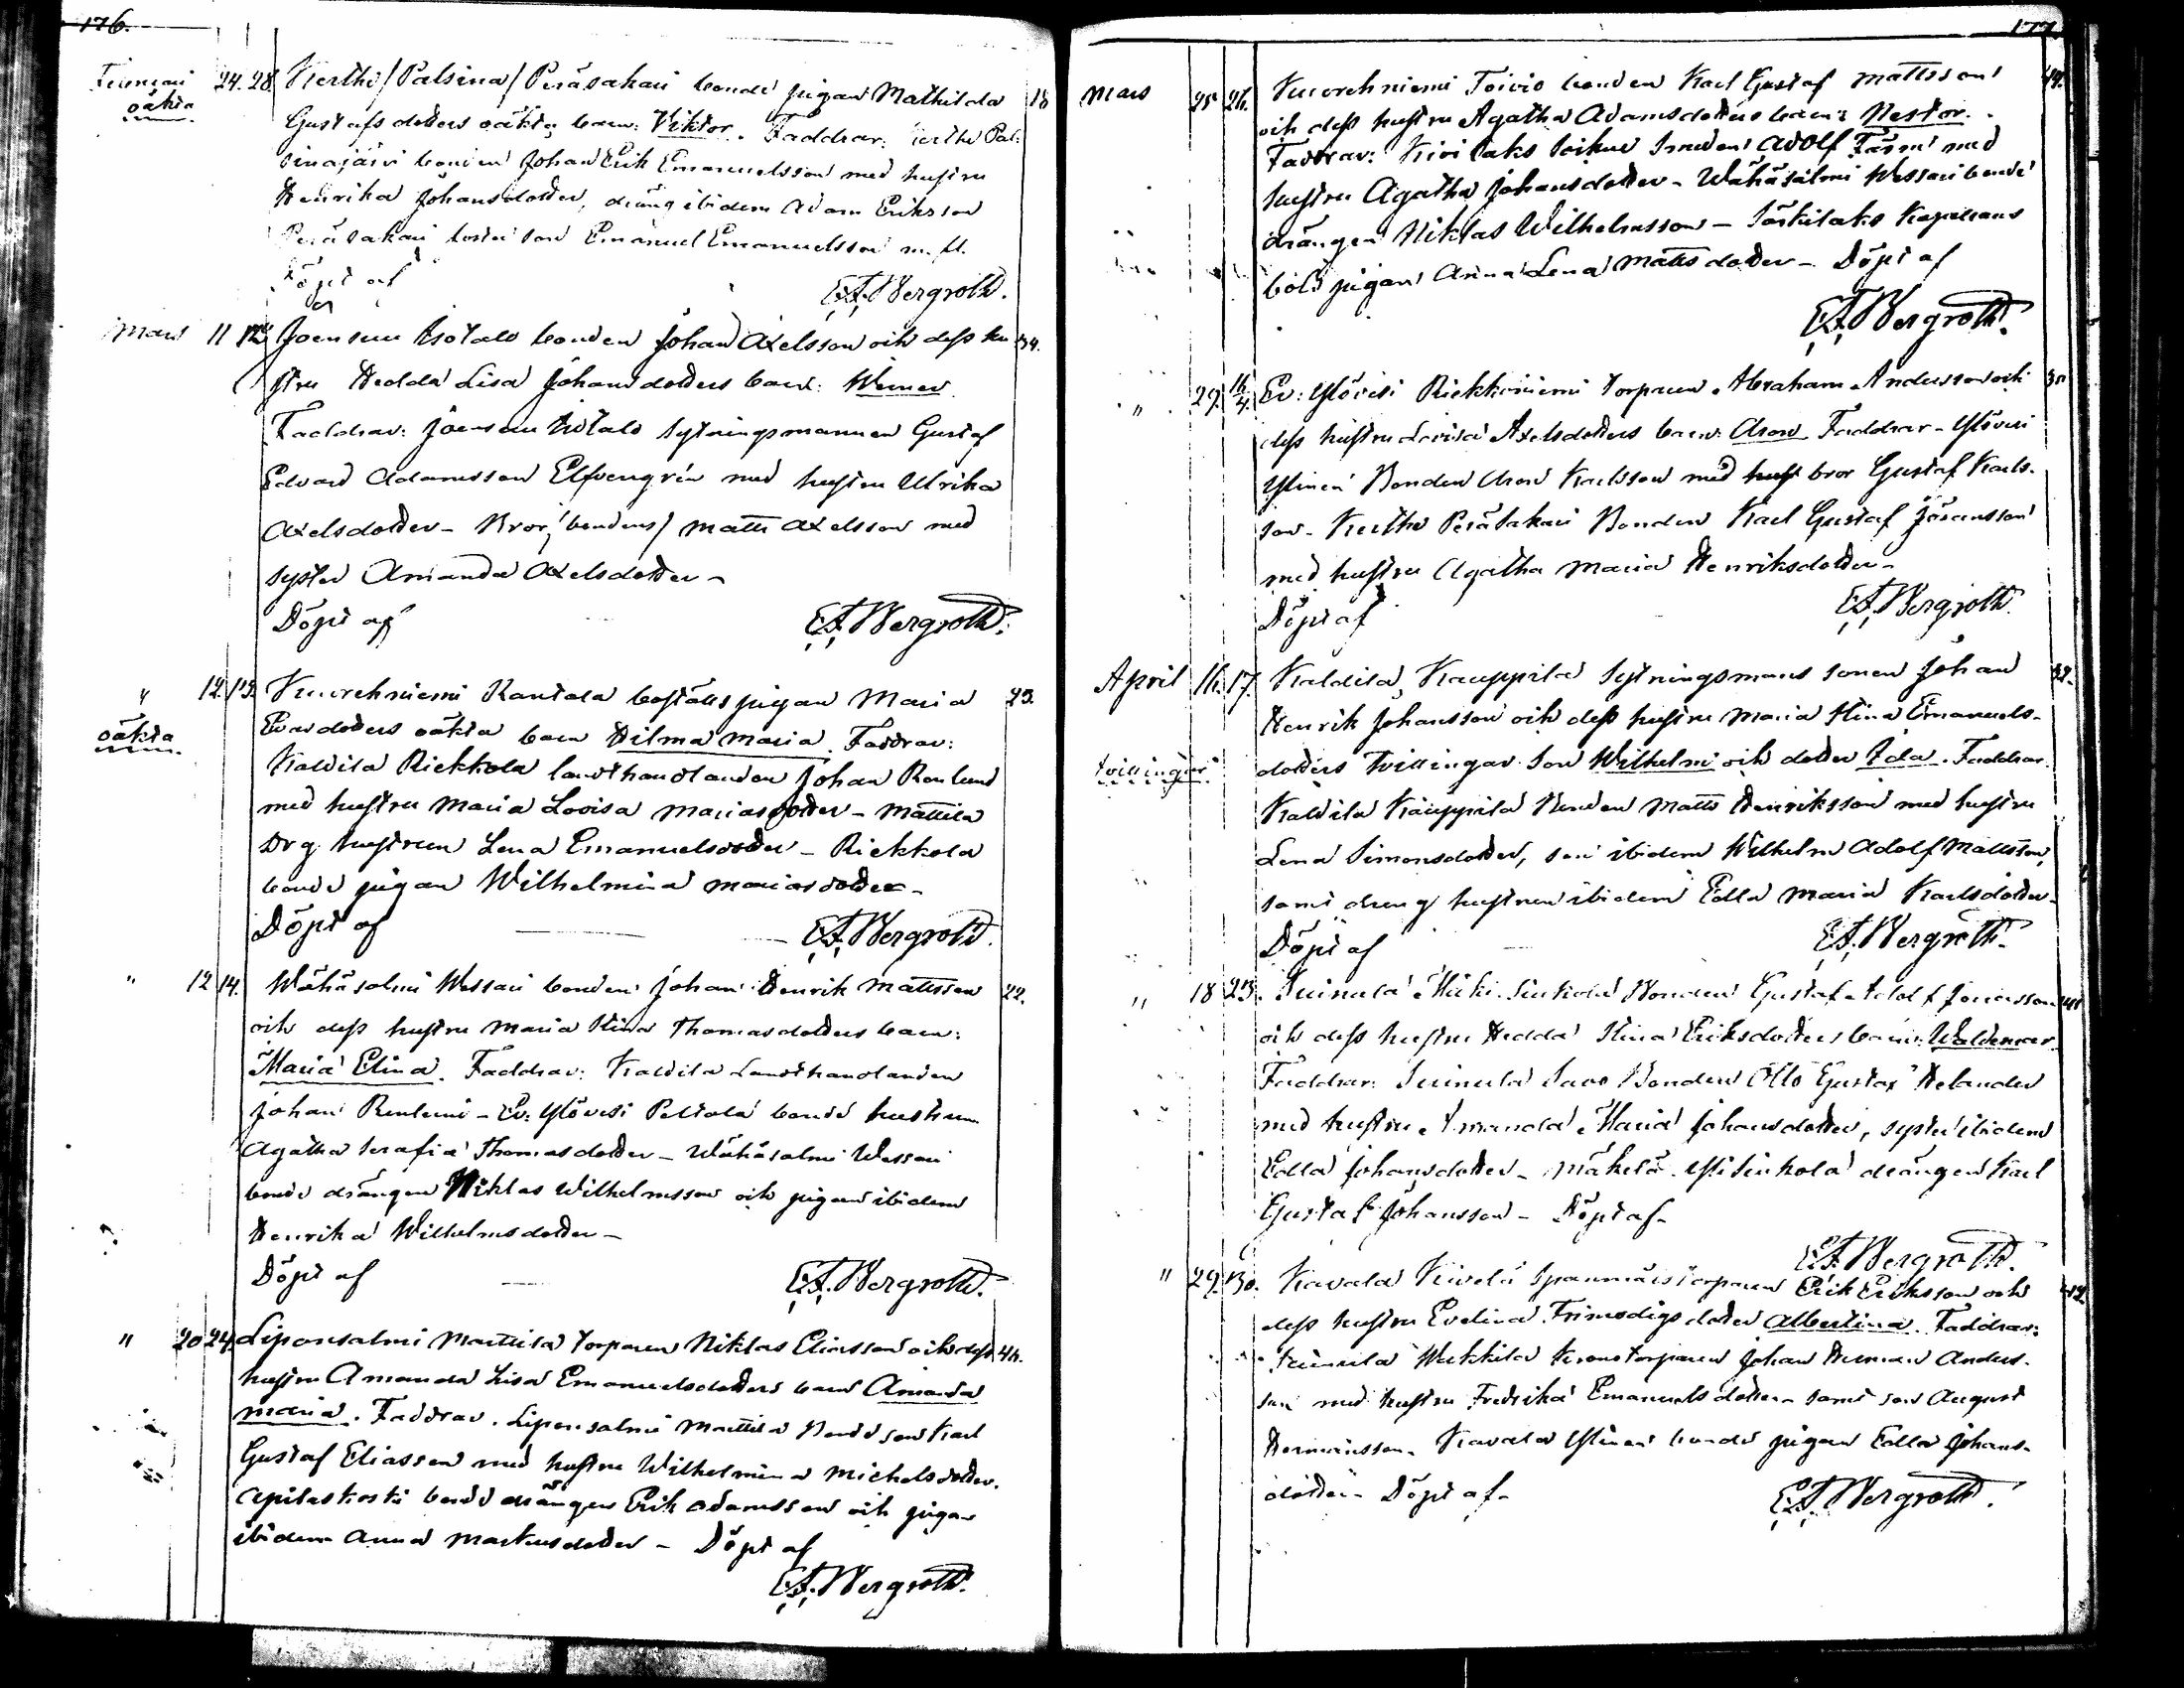 176.
Februari 24. 28. Kertho /Palsina/ Peräsakari bonde pigan Mathilda 18
oäkta Gustafsdotters oäkta barn: Viktor. Faddrar: Kertho Pal-
sinajärvi bonden Johan Erik Emanuelsson med hustru
Henrika Johansdotter, dräng ibidem Adam Eriksson
Peräsakari son Emanuel Emanuelsson m. fl.
Döpt af E.F. Bergroth.
Mars 11 12 Joensuu Isotalo bonden Johan Axelsson och dess hu 34.
stru Hedda Lisa Johansdotters barn: Werner
Faddrar: Joensuu Isotalo sytningsmannen Gustaf
Edvard Adamsson Elfvengrén med hustru Ulrika
Axelsdotter - Bror /bondens/ Matts Axelsson med
syster Amanda Axelsdotter -
Döpt af E.F. Bergroth.
" 12. 13. Kuorehniemi Rantala pigan Maria 23.
oäkta Evasdotters oäkta barn Hilma Maria. Faddrar:
Kaldila Riekkola landthandlanden Johan Renlund
med hustru Maria Lovisa Mariasdotter - Mattila
Drg hustrun Lena Emanuelsdotter - Riekkola
bonde pigan Wilhelmina Mariasdotter -
Döpt af E.F. Bergroth.
" 12 14. Wähäsalmi Wessari bonden Johan Henrik Mattsson 22.
och dess hustru Maria Stina Thomasdotters barn:
Maria Elina. Faddrar: Kaldila Landthandlanden
Johan Renlund - Ev: Ylövesi Peltola bonde hustrun
Agatha Serafia Thomasdotter - Wähäsalmi Wessari
bonde drängen Niklas Wilhelmsson och pigan ibidem
Henrika Wilhelmsdotter -
Döpt af E.F. Bergroth.
" 20 24. Liponsalmi Marttila torparen Niklas Eliasson och dess
hustru Amanda Lisa Emanuelsdotters barn Amanda
Maria. Faddrar. Liponsalmi Marttila Bonde son Karl
Gustaf Eliasson med hustru Wilhelmina Michelsdotter.
Apilaskoski bonde drängen Erik Adamsson och pigan
ibidem Anna Markusdotter - Döpt af
E.F. Bergroth.
177.
Mars 25 26. Kuorehniemi Toivio bonden Karl Gustaf Mattsson
och dess hustru Agatha Adamsdotters barn: Nestor.
Faddrar: Kivilaks Soikus Smeden Adolf Färm med
hustru Agatha Johansdotter - Wähäsalmi Wessari bonde
drängen Niklas Wilhelmsson - Särkilaks Kapellans
bols pigan Anna Lena Mattsdotter - Döpt af
E.F. Bergroth.
" 29. 16/4. Ev: Ylövesi Riekkoniemi torparen Abraham Andersson och
dess hustru Lovisa Axelsdotters barn: Aron Faddrar - Ylövesi
Ylinen Bonden Aron Karlsson med bror Gustaf Karls-
son - Kertho Peräsakari Bonden Karl Gustaf Göransson
med hustru Agatha Maria Henriksdotter -
Döpt af E.F. Bergroth.
April 16. 17. Kaldila Kauppila Sytningsmans sonen Johan
Henrik Johansson och dess hustru Maria Stina Emanuels-
tvillingar dotters tvillingar son Wilhelm och dotter Ida. Faddrar.
Kaldila Kauppila Bonden Matts Henriksson med hustru
Lena Simonsdotter, son ibidem Wilhelm Adolf Mattsson,
samt dreng hustrun ibidem Edla Maria Karlsdotter -
Döpt af E.F. Bergroth.
" 18 23. Suinula Mäki Bonden Gustaf Adolf 41
och dess hustru Hedda Stina Eriksdotters barn: Waldemar.
Faddrar: Suinula Bonden Otto Gustaf Helander
med hustru Amanda Maria Johansdotter, syster ibidem
Edla Johansdotter - Mäkelä drängen Karl
Gustaf Johansson - Döpt af -
E.F. Bergroth.
" 29. 30. Kavala Kivelä torparen Erik Eriksson och
dess hustru Evelina Frimodigsdotter Albertina. Faddrar:
Suinula torparen Johan Herman Anders-
son med hustru Fredrika Emanuelsdotter - samt son August
Hermansson. Kavala Ylinen bonde pigan Edla Johans-
dotter - Döpt af - E.F. Bergroth.